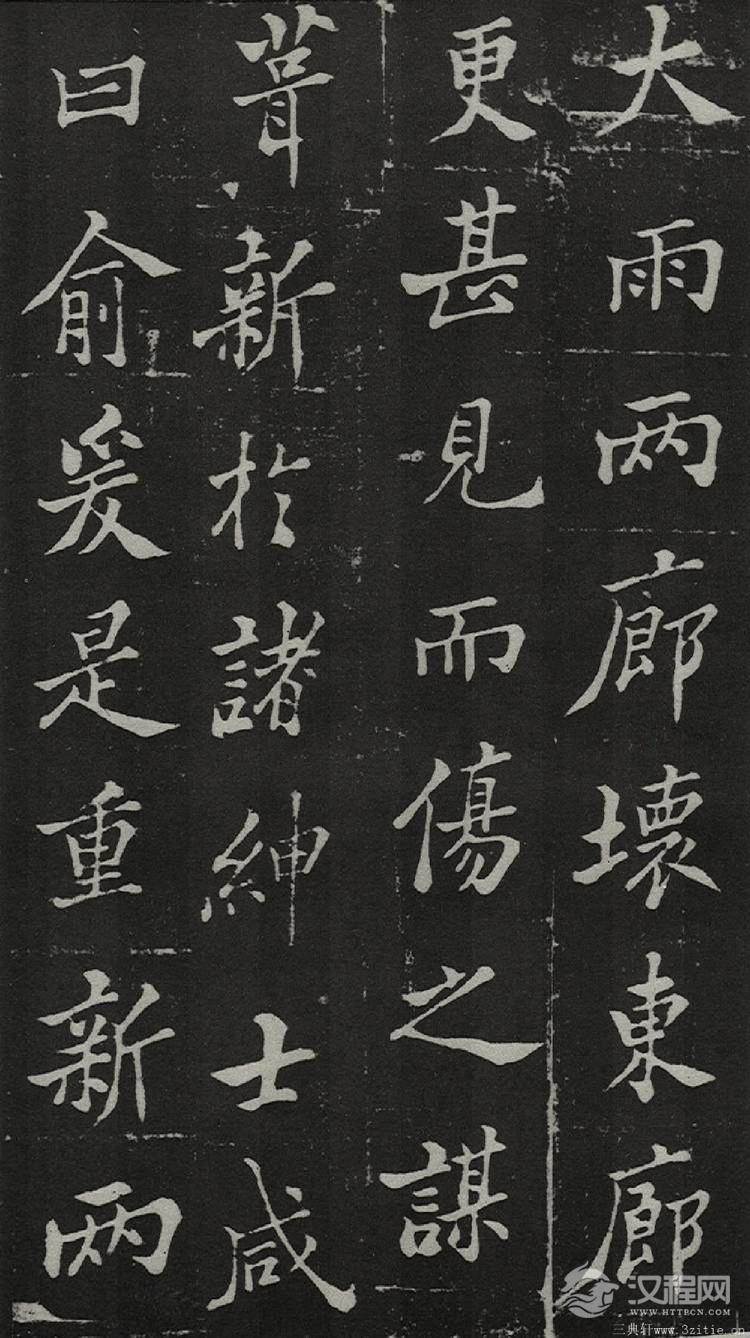 大雨两廊壞東廊
更甚見而傷之謀
葺新於諸紳士咸
曰俞爰是重新两
汉程网
WWW.HTTPCN.COM
三典轩www.3zitie.cn